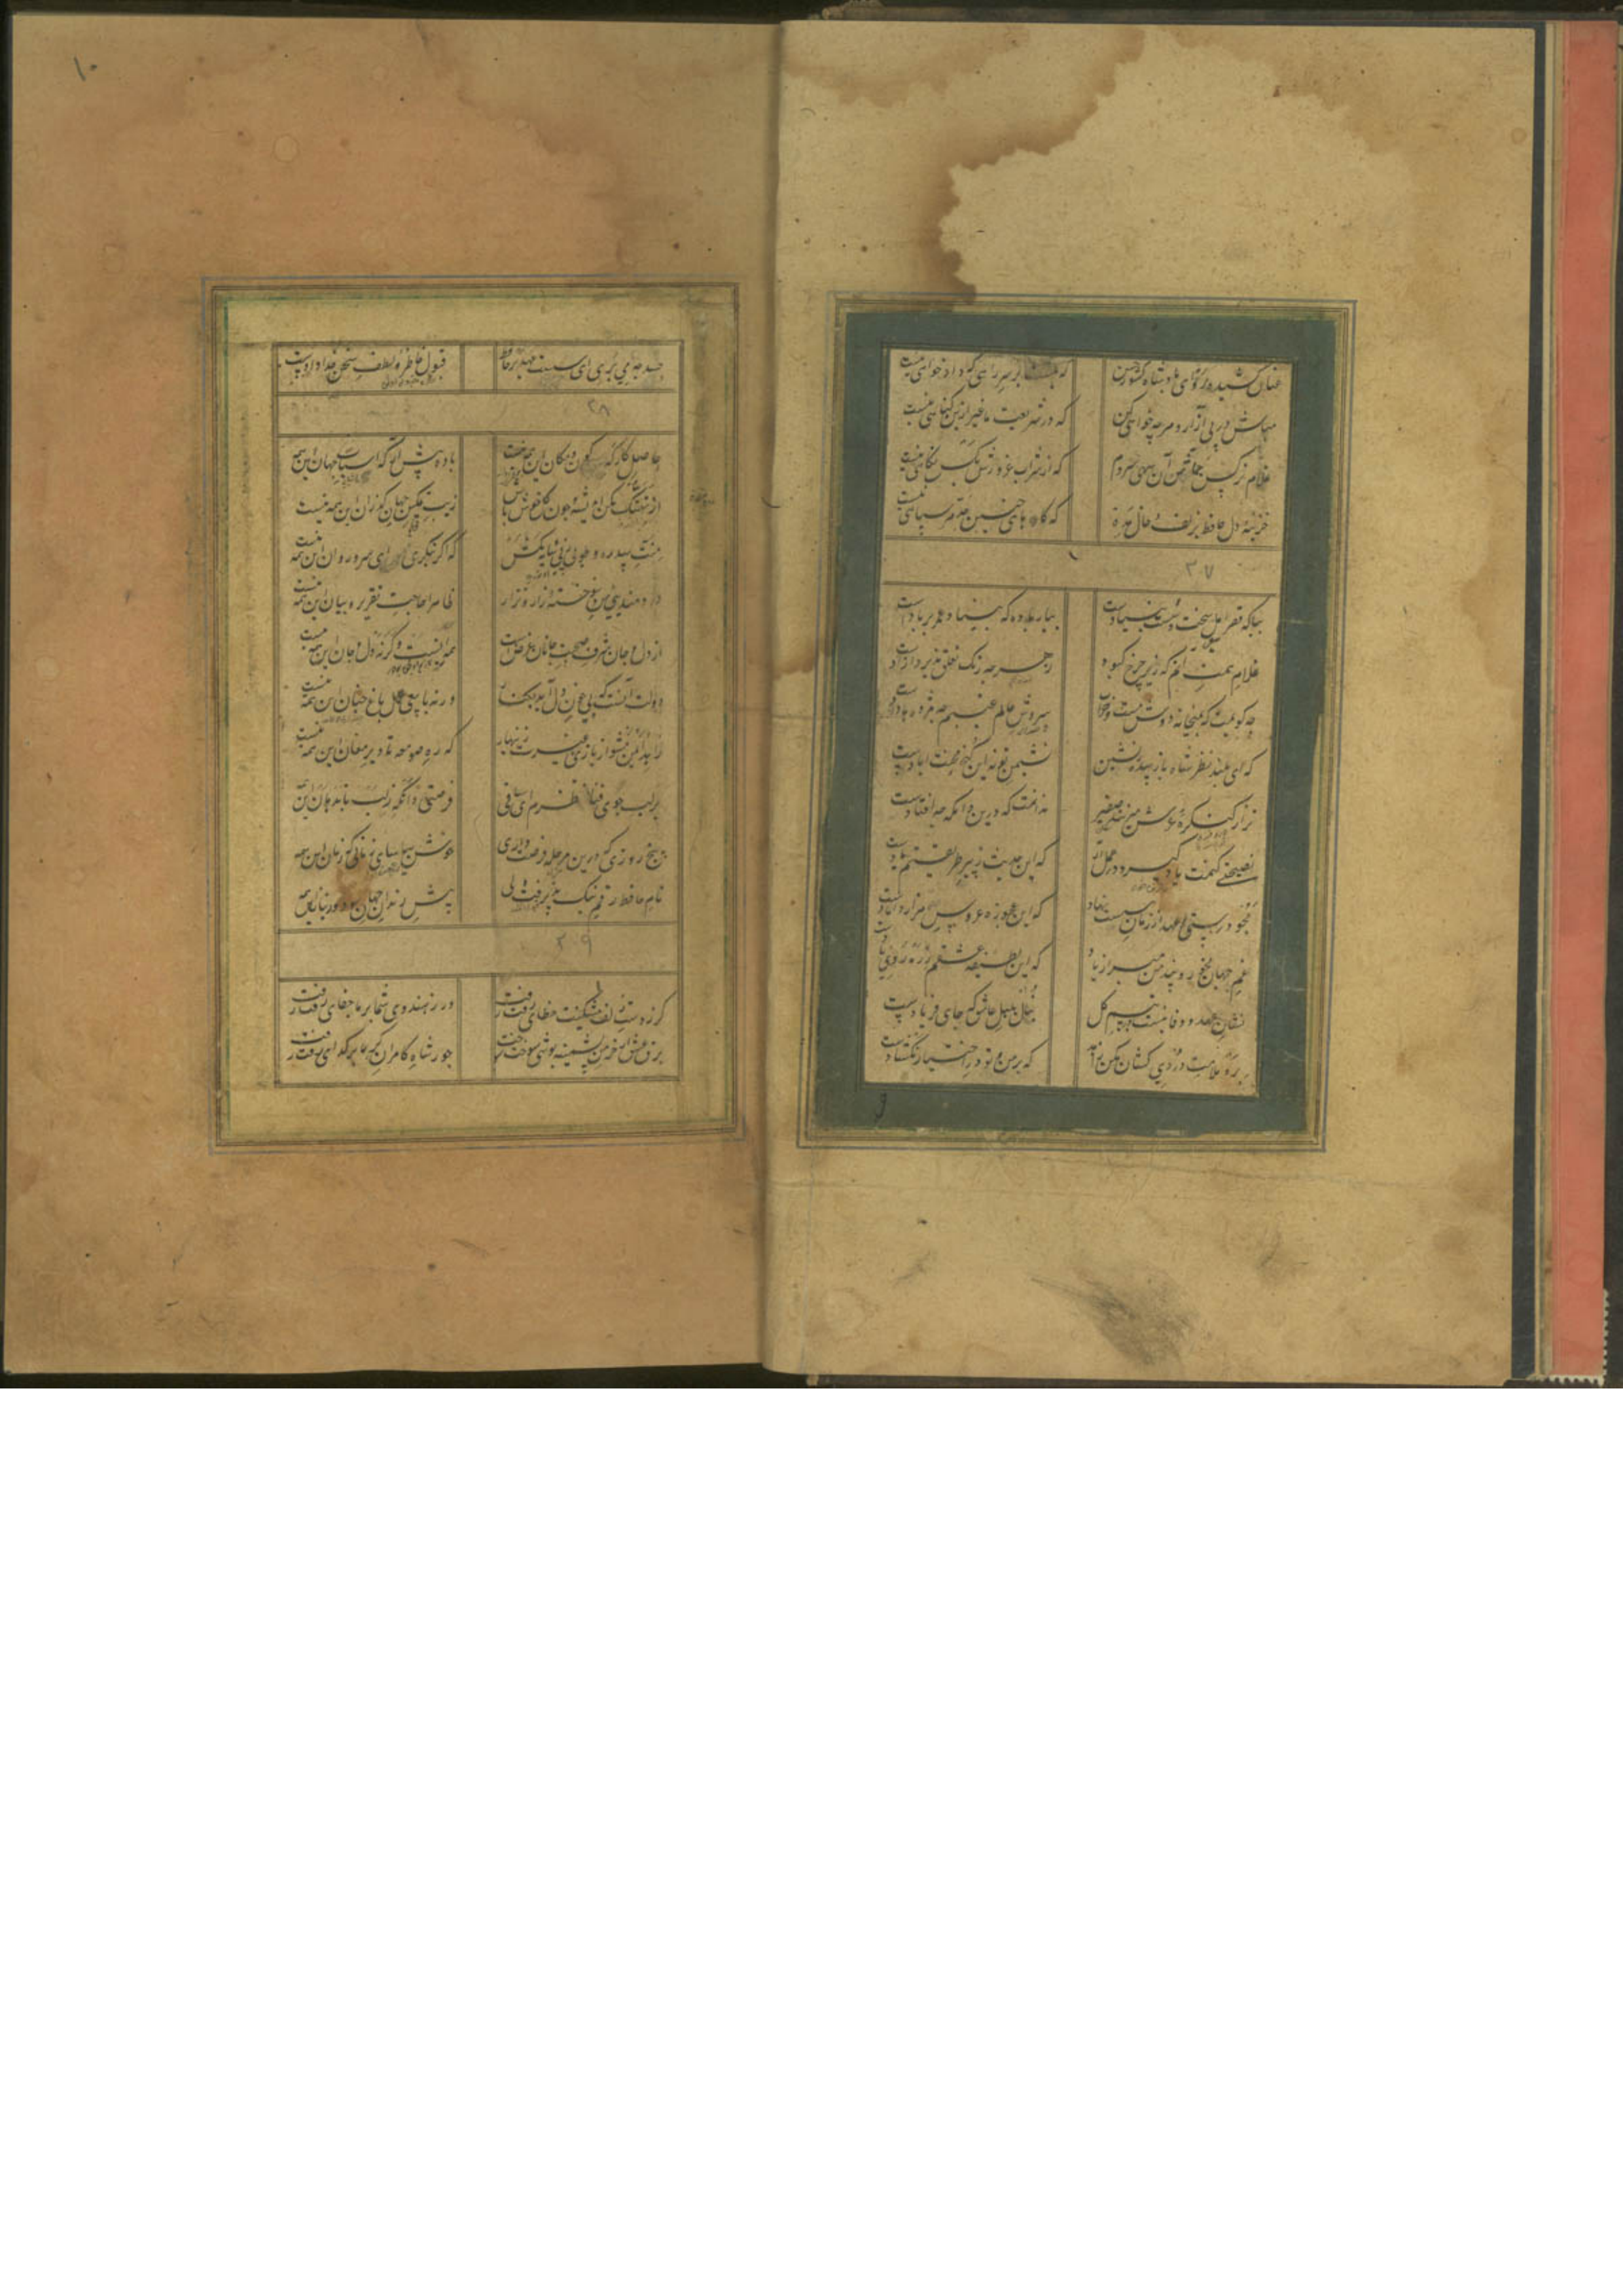 عنان کشیده رو ای پادشاه کشور حسن
که نیست بر سر راهی که دادخواهی نیست
مباش در پی آزار و هرچه خواهی کن
که در شریعت ما غیر ازین گناهی نیست
غلام نرگس جماش آن سهی سروم
که از شراب غرورش بکس نگاهی نیست
خزینه دل حافظ بزلف و خال مده
که کارهای چنین حد هر سیاهی نیست
۳۷
بیا که قصر امل سخت سست بنیادست
بیار باده که بنیاد عمر بر بادست
غلام همت آنم که زیر چرخ کبود
ز هرچه رنک تعلق پذیرد آزادست
چه گویمت که بمیخانه دوش مست و خراب
سروش عالم غیبم چه مژده ها دادست
که ای بلند نظر شاه باز سدره نشین
نشیمن تو نه این کنج محنت آبادست
ترا ز کنکره عرش می زنند صفیر
ندانمت که درین دامکه چه افتادست
نصیحتی کنمت یاد گیر و در عمل آر
که این حدیث ز پیر طریقتم یادست
مجو درستی عهد از زمان سست نهاد
که این عجوزه عروس هزار دامادست
غم جهان مخور و پند من مبر از یاد
که این لطیفه عشقم ز ره روی یادست
نشان عهد و وفا نیست در تبسم گل
بنال بلبل عاشق که جای فریادست
برو ملامت دردی کشان مکن زاهد
که بر من و تو در اختیار نگشادست
۹
۱۰
حسد چه می بری ای سست نظم بر حافظ
قبول خاطر و لطف سخن خدادادست
۲۸
حاصل کارگه کون و مکان این همه نیست
باده پیش آر که اسباب جهان این همه
از تهتک مکن اندیشه و چون گل خوش باش
زانک تمکین جهان گذران این همه نیست
منت سدره و طوبی ز پی سایه مکش
که اگر بنگری ای سرو روان این همه نیست
دردمندی من سوخته زار و نزار
ظاهرا حاجت تقریر و بیان این همه نیست
از دل و جان شرف صحبت جانان غرض است
همه آنست و گرنه دل و جان این همه نیست
دولت آنست که بی خون دل آید بکنار
ورنه با سعی عمل باغ جنان این همه نیست
زاهد ایمن مشو از بازی غیرت زنهار
که ره صومعه تا دیر مغان این همه نیست
بر لب جوی فنا منتظرم ای ساقی
فرصتی دان که ز لب تا بدهان این
پنج روزی که درین مرحله فرصت داری
خوش بیاسای زمانی که زمان این همه
نام حافظ رقم نیک پذیرفت ولی
پیش رندان جهان سود و زیان این همه
۲۹
گر ز دست زلف مشکینت خطایی رفت رفت
ور ز هندوی شما بر ما جفایی رفت رفت
برق عشق ار خرمن پشمینه پوشی سوخت سوخت
جور شاه کامران گر بر گدایی رفت رفت